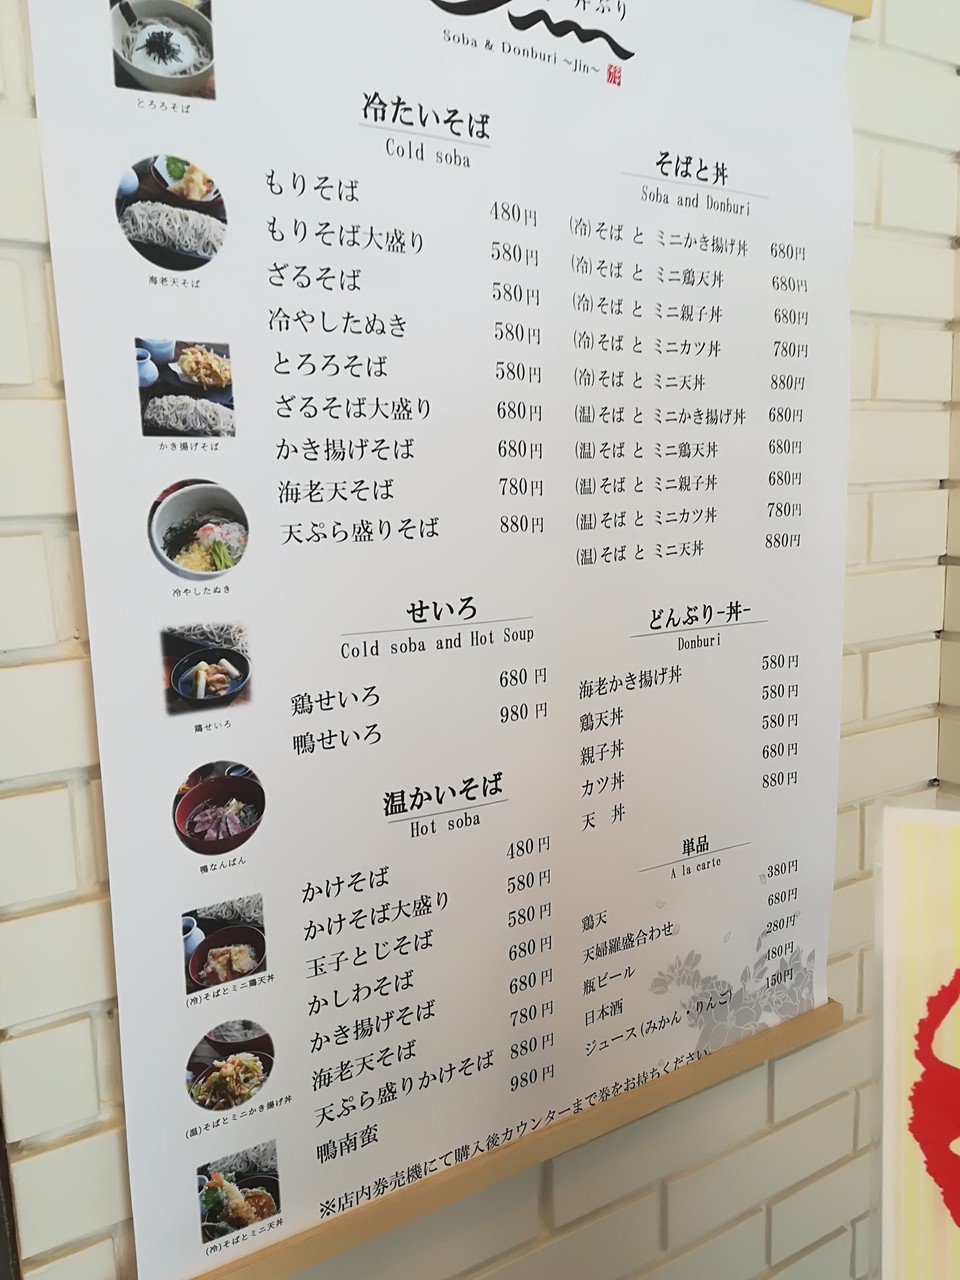 丼ぶり
Soba & Donburi ～Jin～
とろろそば
海老天そば
かき揚げそば
冷やしたぬき
鶏せいろ
鴨なんばん
(冷)そばとミニ鶏天丼
(温)そばとミニかき揚げ丼
(冷)そばとミニ天丼
冷たいそば
Cold soba
もりそば 480円
もりそば大盛り 580円
ざるそば 580円
冷やしたぬき 580円
とろろそば 580円
ざるそば大盛り 680円
かき揚げそば 680円
海老天そば 780円
天ぷら盛りそば 880円
せいろ
Cold soba and Hot Soup
鶏せいろ 680円
鴨せいろ 980円
温かいそば
Hot soba
かけそば 480円
かけそば大盛り 580円
玉子とじそば 580円
かしわそば 680円
かき揚げそば 680円
海老天そば 780円
天ぷら盛りかけそば 880円
鴨南蛮 980円
そばと丼
Soba and Donburi
(冷)そば と ミニかき揚げ丼 680円
(冷)そば と ミニ鶏天丼 680円
(冷)そば と ミニ親子丼 680円
(冷)そば と ミニカツ丼 780円
(冷)そば と ミニ天丼 880円
(温)そば と ミニかき揚げ丼 680円
(温)そば と ミニ鶏天丼 680円
(温)そば と ミニ親子丼 680円
(温)そば と ミニカツ丼 780円
(温)そば と ミニ天丼 880円
どんぶり-丼-
Donburi
海老かき揚げ丼 580円
鶏天丼 580円
親子丼 580円
カツ丼 680円
天 丼 880円
単品
A la carte
鶏天 380円
天婦羅盛合わせ 680円
瓶ビール 280円
日本酒 480円
ジュース(みかん・りんご) 150円
※店内券売機にて購入後カウンターまで券をお持ちください。